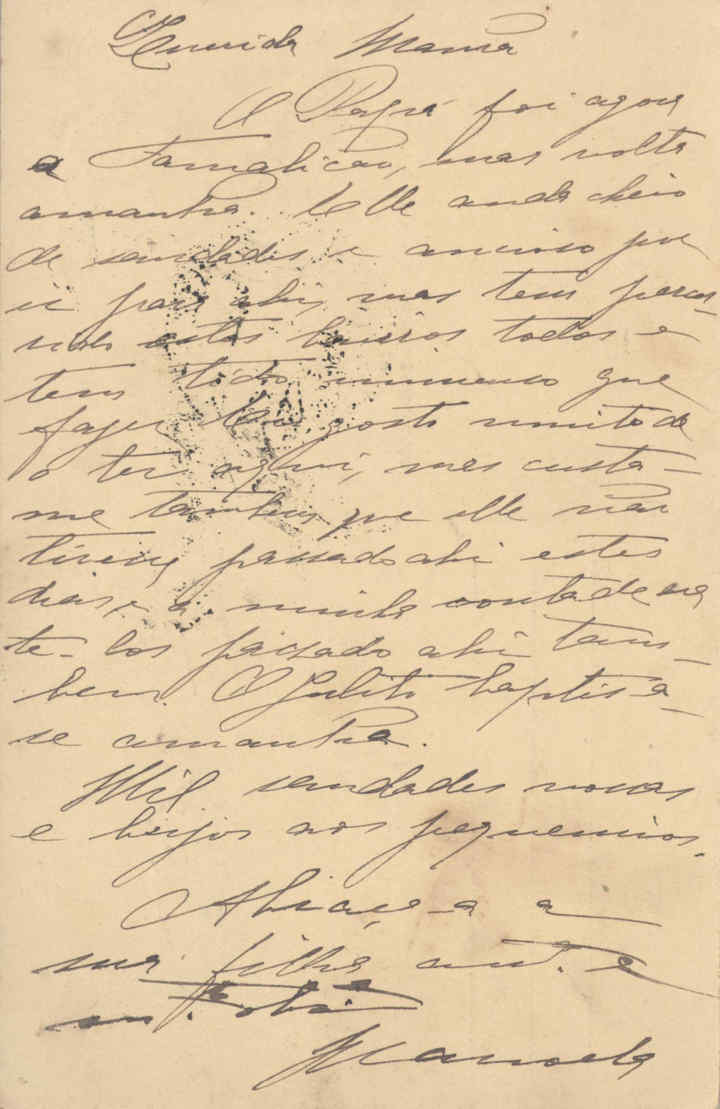 Querida Mamã
O Papá foi agora
a Famalicão, mas volta
amanhã. Elle anda cheio
de saudades e ancioso por
ir para ahi, mas tem percor-
rido estes bairros todos e
tem tido immenso que
fazer. Eu gosto muito de
o ter aqui, mas custa-
me tambem que elle não
tivesse passado ahi estes
dias, e a minha vontade era
te-los passado ahi tam-
bem. O Julito baptisa-
se amanhã.
Mil saudades nossas
e beijos aos pequeninos.
Abraça-a a
sua filha am. e
Manoela